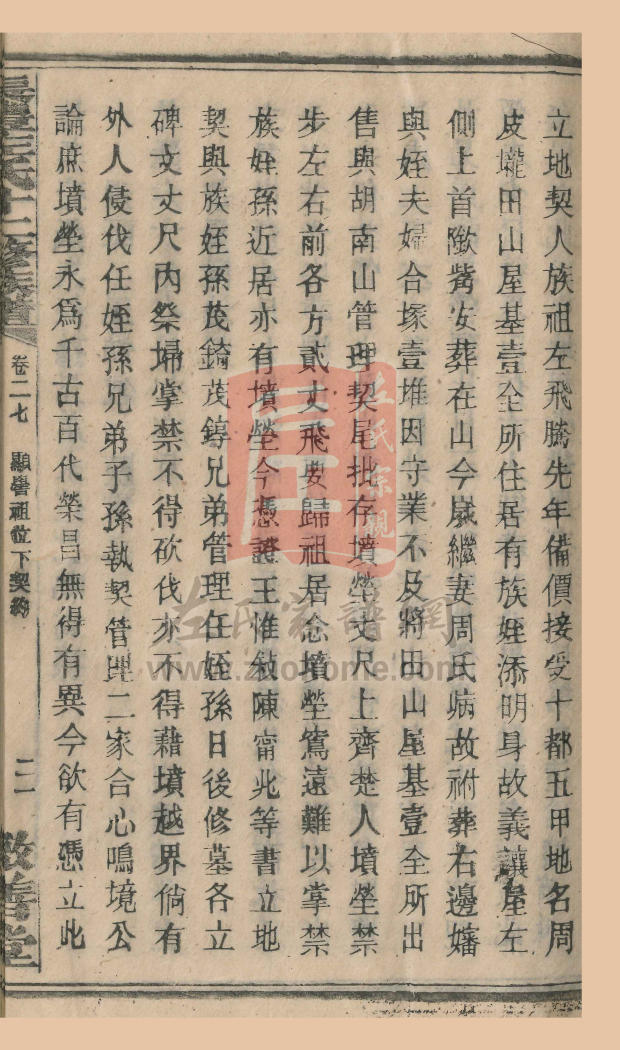 立地契人族祖左飛騰先年備價接受十都五甲地名周
皮壠田山屋基壹全所住居有族姪添明身故義讓屋左
側上首陰觜安葬在山今歲繼妻周氏病故祔葬右邊嬸
與姪夫婦合塚壹堆因守業不及將田山屋基壹全所出
售與胡南山管理契尾批存墳塋丈尺上齊楚人墳塋禁
步左右前各方貳丈飛要歸祖居念墳塋篤遠難以掌禁
族姪孫近居亦有墳塋今憑證王惟敍陳甯此等書立地
契與族姪孫茂錡茂錞兄弟管理任姪孫日後修墓各立
碑文丈尺內祭埽掌禁不得砍伐亦不得藉墳越界倘有
外人侵伐任姪孫兄弟子孫執契管理二家合心鳴境公
論庶墳塋永爲千古百代榮昌無得有異今欲有憑立此
左氏十二修族譜
卷二七 顯譽祖位下契約
二
敬善堂
左氏宗親
左氏家譜網
www.zuohome.com